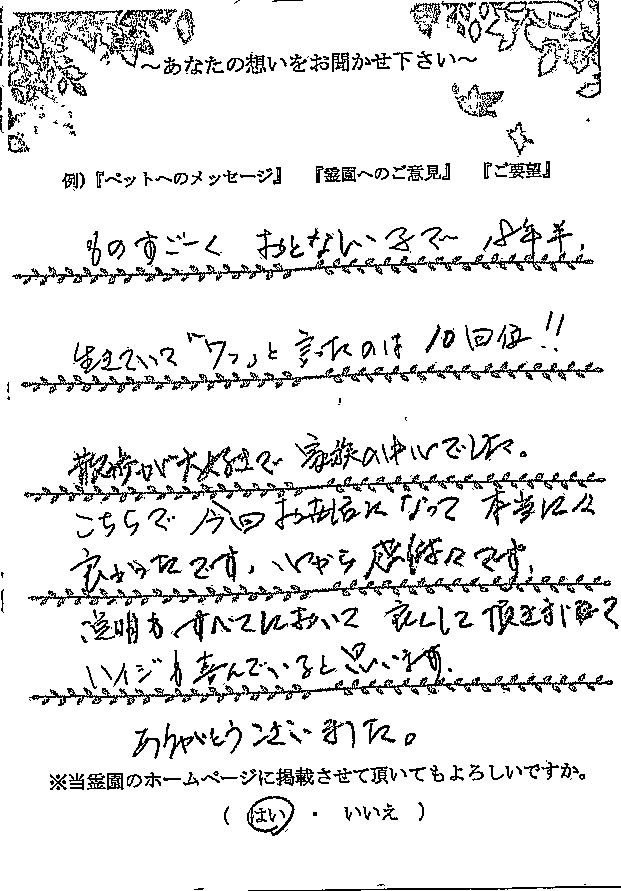 ～あなたの想いをお聞かせ下さい～
例）『ペットへのメッセージ』 『霊園へのご意見』 『ご要望』
ものすごーく おとなしい子で 18年半、
生きていて「ワン」と言ったのは 10回位!!
散歩が大好きで 家族の中心でした。
こちらで 今回お世話になって 本当に々
良かったです、心から感謝々です。
説明も すべてにおいて 良くして頂きまして
ハイジも喜んでいると思います。
ありがとうございました。
※当霊園のホームページに掲載させて頂いてもよろしいですか。
（ はい ・ いいえ ）